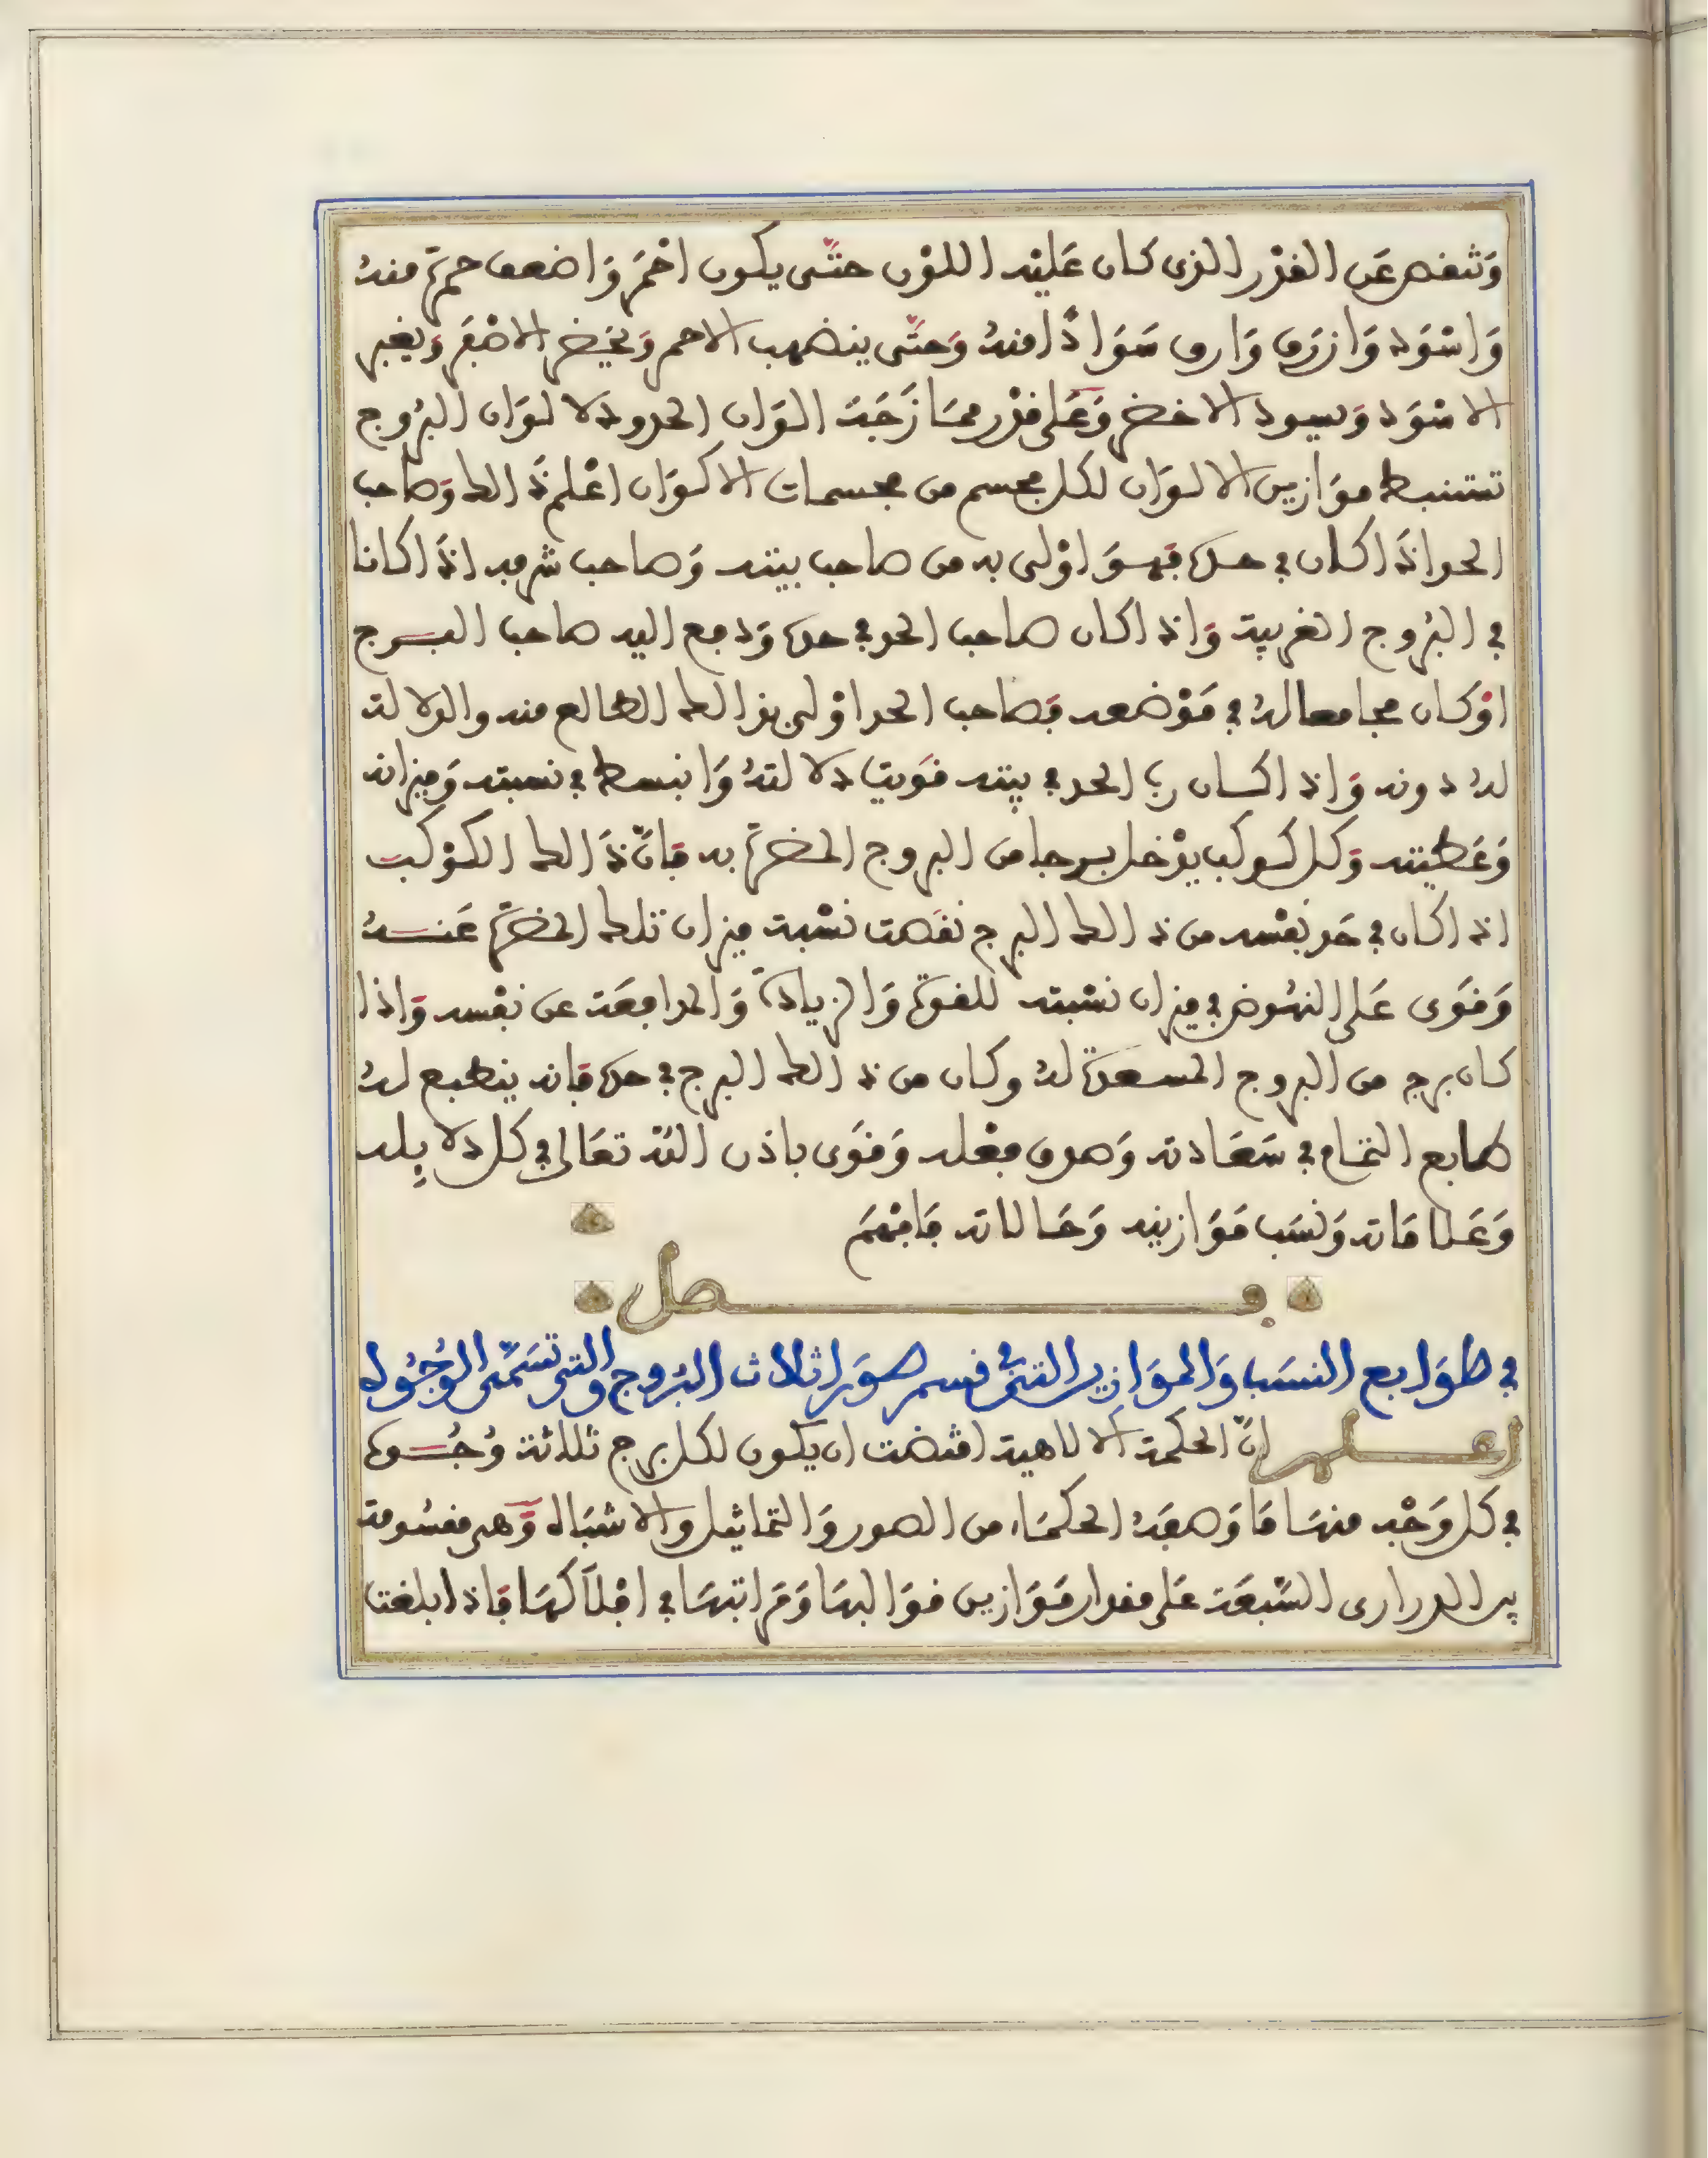 وَتنفص عَن القدْر الذى كان عَليْه اللوْن حتَّى يكون احْمَر وَاضعف حمرَة منهُ
وَاسْوَد وَازرَق وَارق سَوَادًا منهُ وَحتَّى ينضهب الاحمر وَيخضر الاصْفَر وَيغبر
الاسْوَد وَيسود الاخضر وَعَلى قدْر ممَازَجَة الوَان الحدود لالوَان البرُوج
تستنبط موَازين الالوَان لكل مجسم من مجسمات الاكوَان اعْلم ذَالك وَصاحب
الحد اذَا كان في حده فهوَ اوْلى به من صاحب بيته وَصاحب شرفه اذَا كانا
في البرُوج الغربية وَاذا كان صاحب الحد في حده وَدفع اليه صاحب البرج
اوْ كان مجامعا لهُ في مَوْضعه فصاحب الحد اوْلى بذالك الطالع منه والدلالة
لهُ دونه وَاذا كان رب الحد في بيته قوَيت دلالتهُ وَانبسط في نسبته وَميزانه
وَعَطيته وَكل كوكب يدْخل برجا من البروج المضرَة به فانّ ذَالك الكوْكب
اذا كان في حَد نفْسه من ذالك البرج نقَصت نسْبة ميزان تلك المضرَة عَنهُ
وَقوَى عَلى النهُوض في ميزان نسْبته للقوة وَالزيادَة وَالمدافعَة عن نفْسه وَاذا
كان برج من البروج المسعدَة لهُ وكان من ذالك البرج في حده فانه ينطبع لهُ
طابع التمام في سَعَادته وَصدق فعْله وَقوَى باذن اللّه تعَالى في كل دلايله
وَعَلامَاته وَنسَب مَوَازينه وَحَالاته فَافْهَم
فصل
في طوَابع النسَب وَالموَازين التي في قسم صوَر اثلاث البرُوج والتي تسَمَّى الوُجُوه
اعلم انّ الحكمة الالاهية اقتضت ان يكون لكل برج ثلاثة وُجُوه
في كل وَجْه منهَا مَا وَصفَهُ الحكمَاء من الصور وَالتماثيل والاشبَاه وَهى مقسُومة
بين الدرارى السّبعَة عَلى مقدار مَوَازين قوَالبهَا وَمَرَاتبهَا في افْلاَكهَا فاذا بلغت